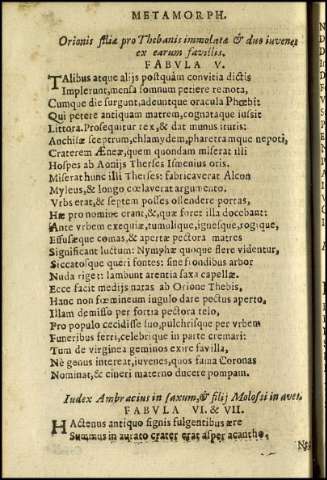 METAMORPH.
Orionis filiæ pro Thebanis immolatæ & duo iuvenes
ex earum favillis.
FABVLA V.
TAlibus atque alijs postquàm convitia dictis
Implerunt, mensa somnum petiere remota,
Cumque die surgunt, adeuntque oracula Phœbi:
Qui petere antiquam matrem, cognataque iussit
Littora. Prosequitur rex, & dat munus ituris:
Anchisæ sceptrum, chlamydem, pharetramque nepoti,
Craterem Æneæ, quem quondam miserat illi
Hospes ab Aonijs Therses Ismenius oris.
Miserat hunc illi Therses: fabricaverat Alcon
Myleus, & longo cœlaverat argumento.
Vrbs erat, & septem posses ostendere portas,
Hæ pro nomine erant, &, quæ foret illa docebant:
Ante vrbem exequiæ, tumulique, ignesque, rogique,
Effusæque comas, & apertæ pectora matres
Significant luctum: Nymphæ quoque flere videntur,
Siccatosque queri fontes: sine frondibus arbor
Nuda riget: lambunt arentia saxa capellæ.
Ecce facit medijs natas ab Orione Thebis,
Hanc non fœmineum iugulo dare pectus aperto,
Illam demisso per fortia pectora telo,
Pro populo cecidisse suo, pulchrisque per vrbem
Funeribus ferri, celebrique in parte cremari:
Tum de virginea geminos exire favilla,
Nè genus intereat, iuvenes, quos fama Coronas
Nominat, & cineri materno ducere pompam.
Iudex Ambracius in saxum, & filij Molossi in aves.
FABVLA VI. & VII.
HActenus antiquo signis fulgentibus ære
Summus in aurato crater erat asper acantho,